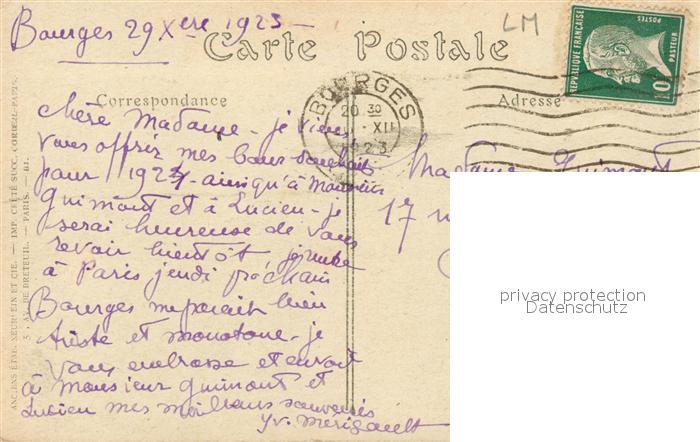 Bourges 29 Xbre 1923
LM
Carte Postale
REPUBLIQUE FRANÇAISE
POSTES
PASTEUR
10
Correspondance
Adresse
BOURGES
20 30
XII
1923
Chère Madame - je viens
vous offrir mes bons souhaits
pour 1924 - ainsi qu'à Monsieur
Guimont et à Lucien - je
serai heureuse de vous
revoir bientôt je rentre
à Paris jeudi prochain
Bourges me parait bien
triste et monotone - je
vous embrasse et envoit
à Monsieur Guimont et
Lucien mes meilleurs souvenirs
Yv. Mérigault
Madame Guimont
17
privacy protection
Datenschutz
ANCIENS ÉTAB. NEURDEIN ET CIE. — IMP. CRÉTÉ SUCC. CORBEIL-PARIS.
AV. DE BRETEUIL. — PARIS.